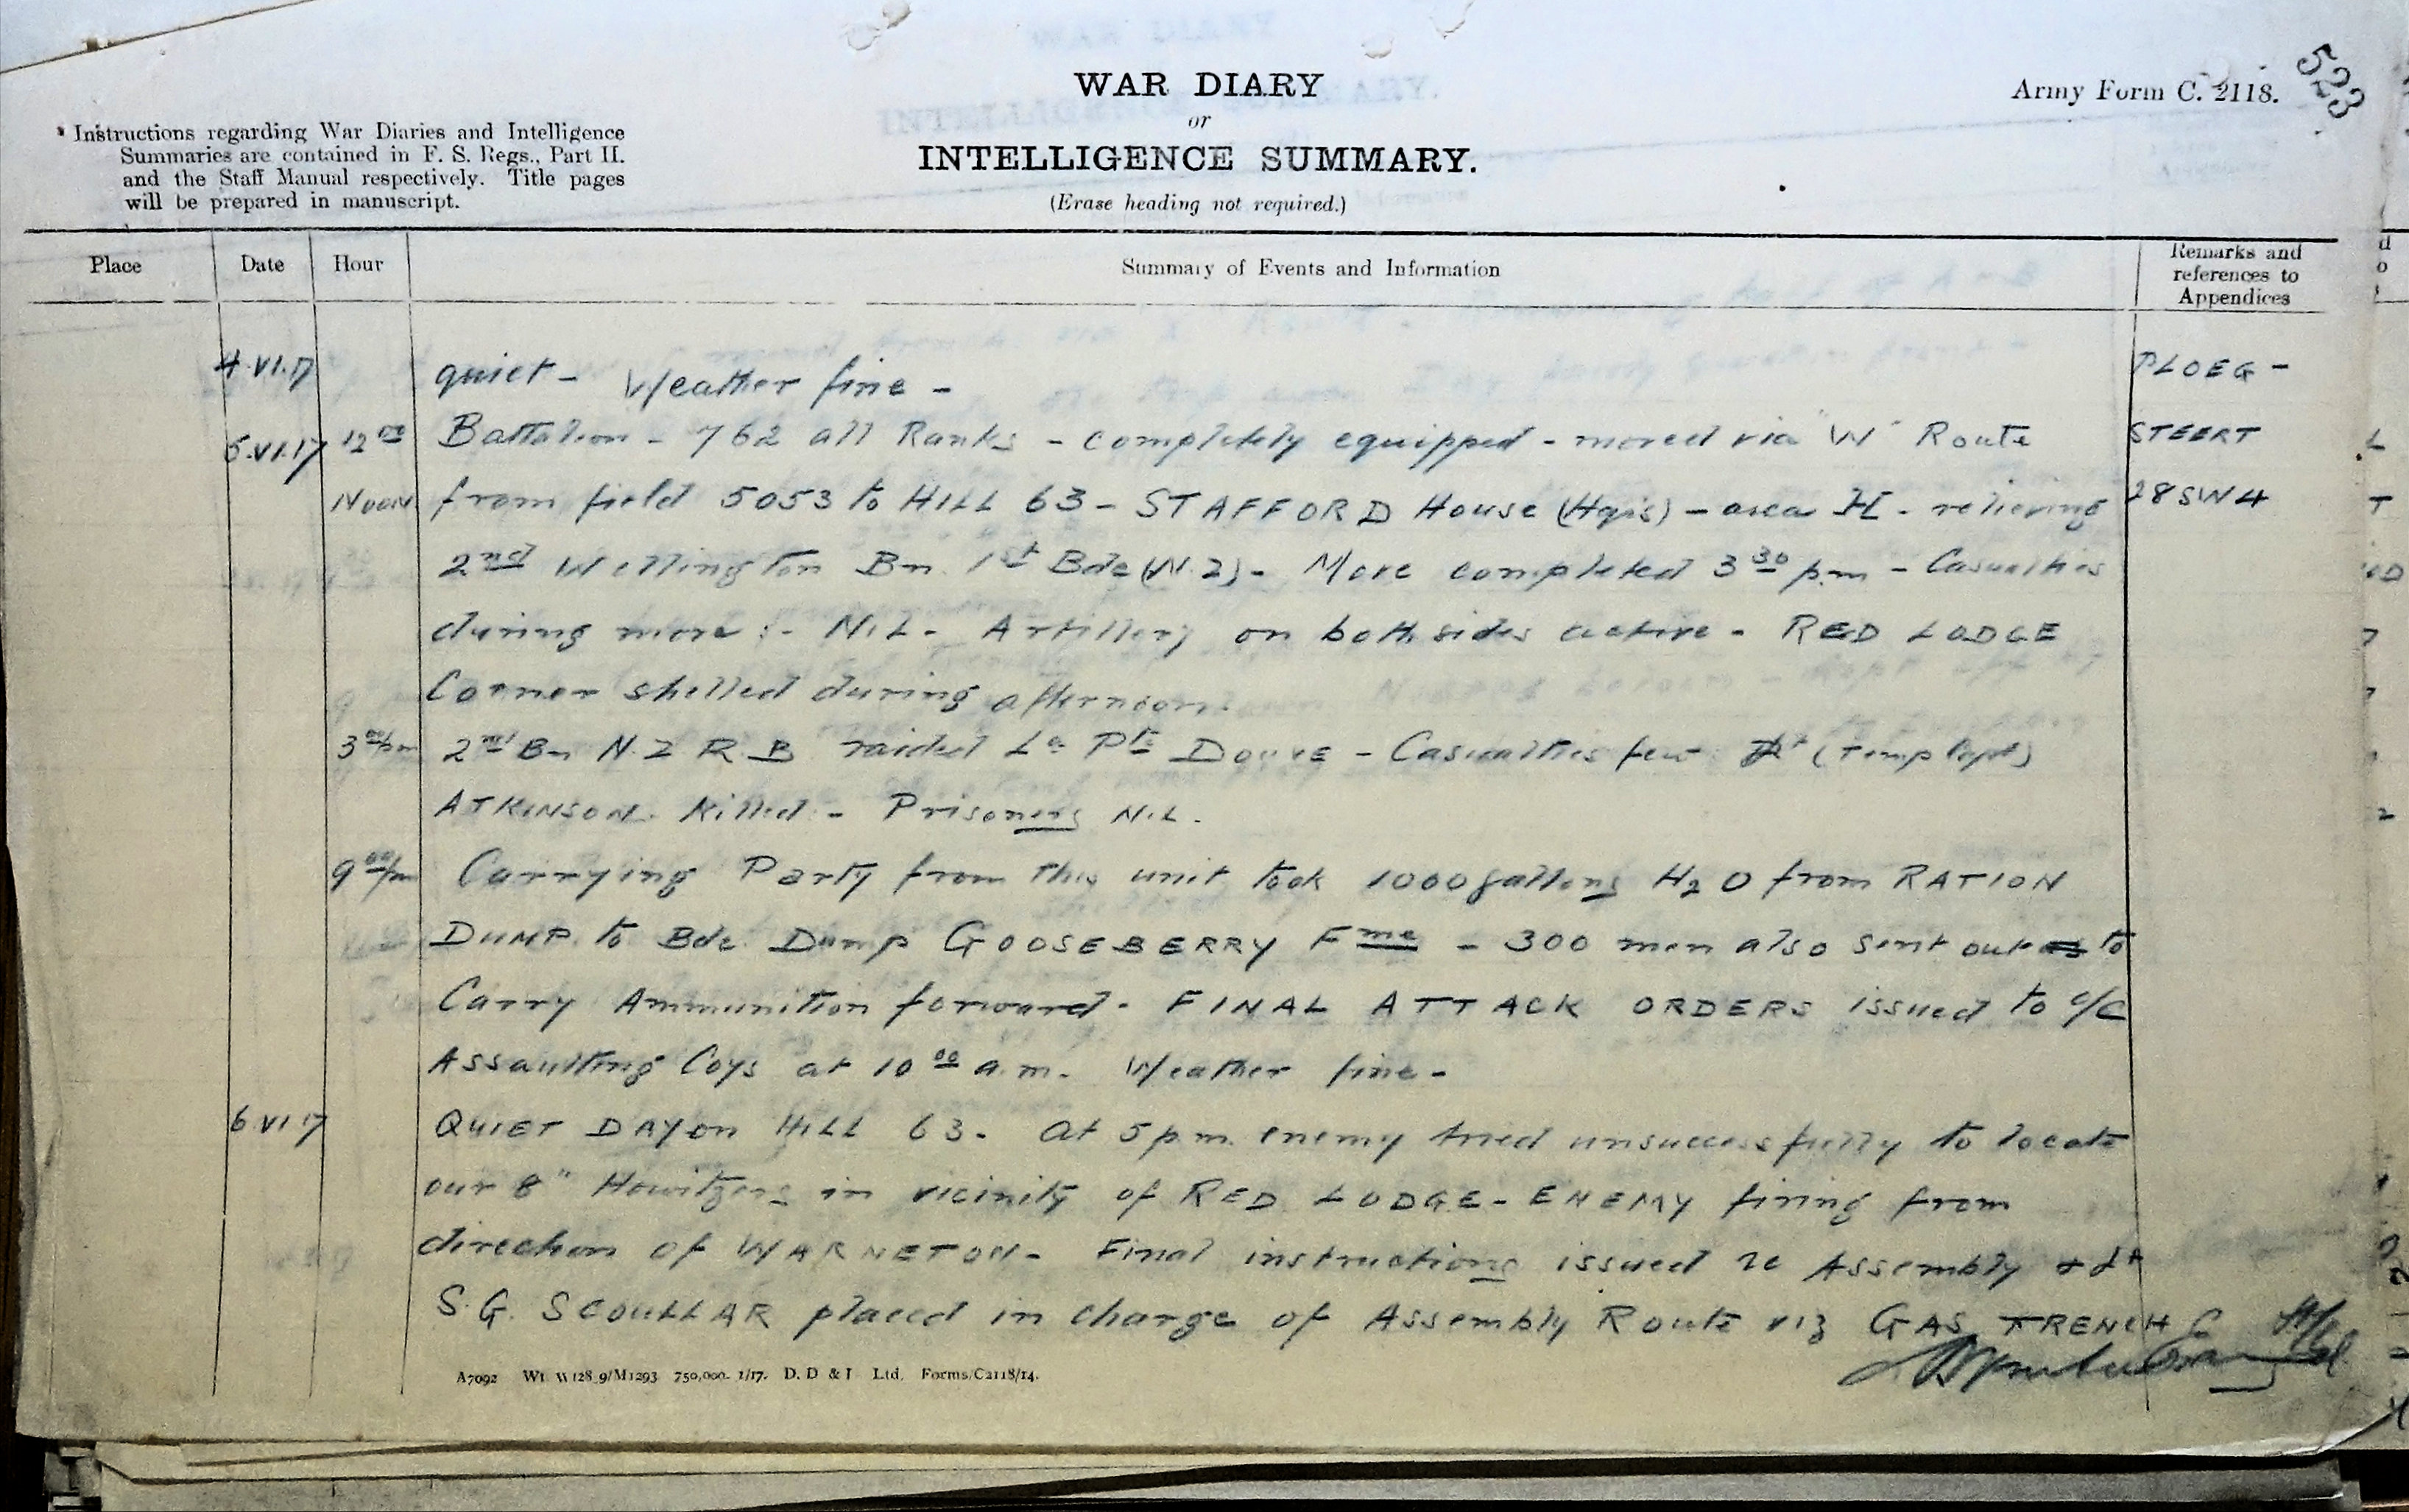 WAR DIARY
or
INTELLIGENCE SUMMARY.
(Erase heading not required.)
Army Form C. 2118.
523
* Instructions regarding War Diaries and Intelligence
Summaries are contained in F. S. Regs., Part II.
and the Staff Manual respectively. Title pages
will be prepared in manuscript.
Place Date Hour Summary of Events and Information Remarks and references to Appendices
4.VI.17 quiet - Weather fine - PLOEG -
5.VI.17 12 00 Battalion - 762 all Ranks - completely equipped - moved via "W" Route STEERT
Noon from field 5053 to HILL 63 - STAFFORD House (Hqrs) - area - relieving 28 SW 4
2nd Wellington Bn. 1st Bde (N.Z) - Move completed 3 30 p.m - Casualties
during move :- NIL - Artillery on both sides active - RED LODGE
Corner shelled during afternoon.
3 00 pm 2nd Bn N.Z R.B raided La Pte DOUVE - Casualties few (Temp Capt)
ATKINSON Killed - Prisoners NIL.
9 00 pm Carrying Party from this unit took 1000 gallons H2O from RATION
DUMP to Bde Dump GOOSEBERRY Fme - 300 men also sent out to
Carry Ammunition forward - FINAL ATTACK ORDERS issued to O/C
Assaulting Coys at 10 00 a.m. Weather fine -
6 VI 17 QUIET DAY on HILL 63. At 5 p.m. enemy tried unsuccessfully to locate
our 8" Howitzers in vicinity of RED LODGE - ENEMY firing from
direction of WARNETON - Final instructions issued re Assembly & Lt
S.G. SCOULLAR placed in charge of Assembly Route viz GAS TRENCH
A7092 Wt. W128.9/M1293 750,000. 1/17. D. D & L Ltd. Forms/C2118/14.